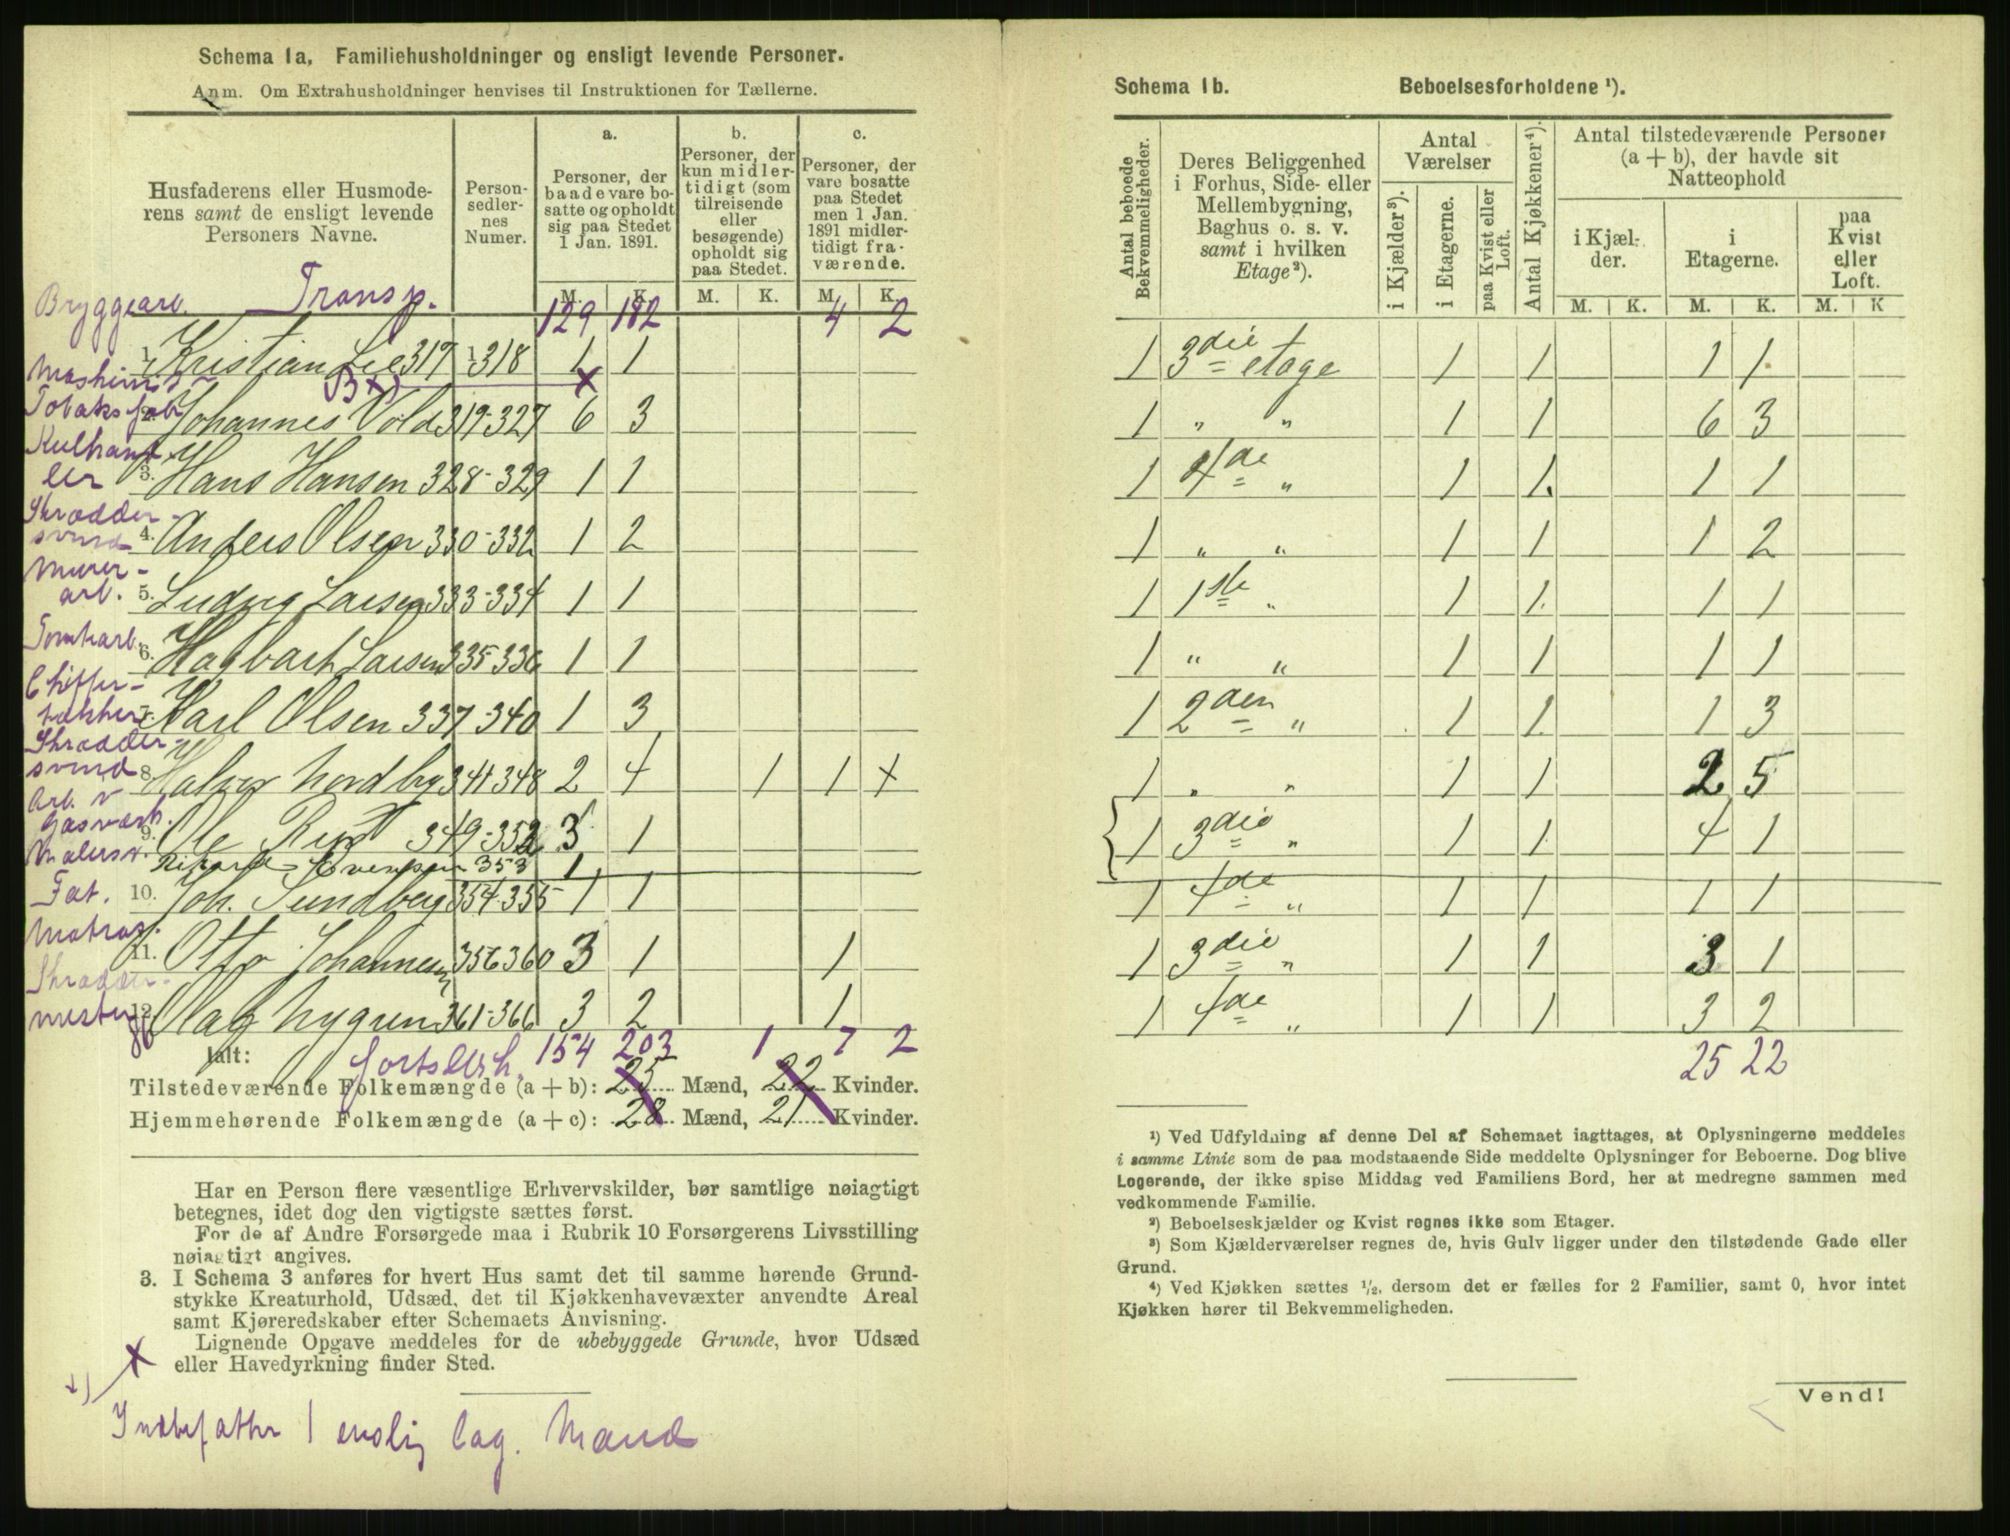 Schema 1a, Familiehusholdninger og ensligt levende Personer.
Anm. Om Extrahusholdninger henvises til Instruktionen for Tællerne.
Husfaderens eller Husmoderens samt de ensligt levende Personers Navne.
Personsedlernes Numer.
a. Personer, der baade vare bosatte og opholdt sig paa Stedet 1 Jan. 1891.
b. Personer, der kun midlertidigt (som tilreisende eller besøgende) opholdt sig paa Stedet.
c. Personer, der vare bosatte paa Stedet men 1 Jan. 1891 midlertidigt fraværende.
M. K. M. K. M. K.
Bryggearb. Transp. 129 182 4 2
1. Kristian Lie 317-318 1 1
Maskinist B x) x
Tobaksfab. 2. Johannes Vold 319-327 6 3
Kulhandler 3. Hans Hansen 328-329 1 1
Skrædder-
svend 4. Anders Olsen 330-332 1 2
Murer-
arb. 5. Ludvig Larsen 333-334 1 1
Tomtearb. 6. Hagbart Larsen 335-336 1 1
Skiffer-
tækker 7. Karl Olsen 337-340 1 3
Skrædder-
svend 8. Halvor Nordby 341-348 2 4 1 1 x
Arb. v
Gasværk. 9. Ole 349-352 3 1
Malersv. Rikard Evensen 353 1
Fat. 10. Joh. Sundberg 354-355 1 1
Matros. 11. Otto Johannesen 356-360 3 1 1
Skrædder-
mester 12. Olaf Nygren 361-366 3 2 1
Ialt: fortsættes 154 203 1 7 2
Tilstedeværende Folkemængde (a + b): 25 Mænd, 22 Kvinder.
Hjemmehørende Folkemængde (a + c): 28 Mænd, 21 Kvinder.
Har en Person flere væsentlige Erhvervskilder, bør samtlige nøiagtigt
betegnes, idet dog den vigtigste sættes først.
For de af Andre Forsørgede maa i Rubrik 10 Forsørgerens Livsstilling
nøiagtigt angives.
3. I Schema 3 anføres for hvert Hus samt det til samme hørende Grund-
stykke Kreaturhold, Udsæd, det til Kjøkkenhavevæxter anvendte Areal
samt Kjøreredskaber efter Schemaets Anvisning.
Lignende Opgave meddeles for de ubebyggede Grunde, hvor Udsæd
eller Havedyrkning finder Sted.
x) Indbefatter 1 enslig log. Mand
Schema 1b. Beboelsesforholdene ¹).
Antal beboede Bekvemmeligheder.
Deres Beliggenhed i Forhus, Side- eller Mellembygning, Baghus o. s. v. samt i hvilken Etage²).
Antal Værelser
i Kjælder³). i Etagerne. paa Kvist eller Loft.
Antal Kjøkkener⁴).
Antal tilstedeværende Personer (a + b), der havde sit Natteophold
i Kjælder. i Etagerne. paa Kvist eller Loft.
M. K. M. K. M. K
1 3die etage 1 1 1 1
1 " " 1 1 6 3
1 4de " 1 1 1 1
1 " " 1 1 1 2
1 1ste " 1 1 1 1
1 " " 1 1 1 1
1 2den " 1 1 1 3
1 " " 1 1 2 5
1 3die " 1 1 4 1
1 4de " 1 1 1 1
1 3die " 1 1 3 1
1 4de " 1 1 3 2
25 22
¹) Ved Udfyldning af denne Del af Schemaet iagttages, at Oplysningerne meddeles
i samme Linie som de paa modstaaende Side meddelte Oplysninger for Beboerne. Dog blive
Logerende, der ikke spise Middag ved Familiens Bord, her at medregne sammen med
vedkommende Familie.
²) Beboelseskjælder og Kvist regnes ikke som Etager.
³) Som Kjælderværelser regnes de, hvis Gulv ligger under den tilstødende Gade eller
Grund.
⁴) Ved Kjøkken sættes ¹/₂, dersom det er fælles for 2 Familier, samt 0, hvor intet
Kjøkken hører til Bekvemmeligheden.
Vend!